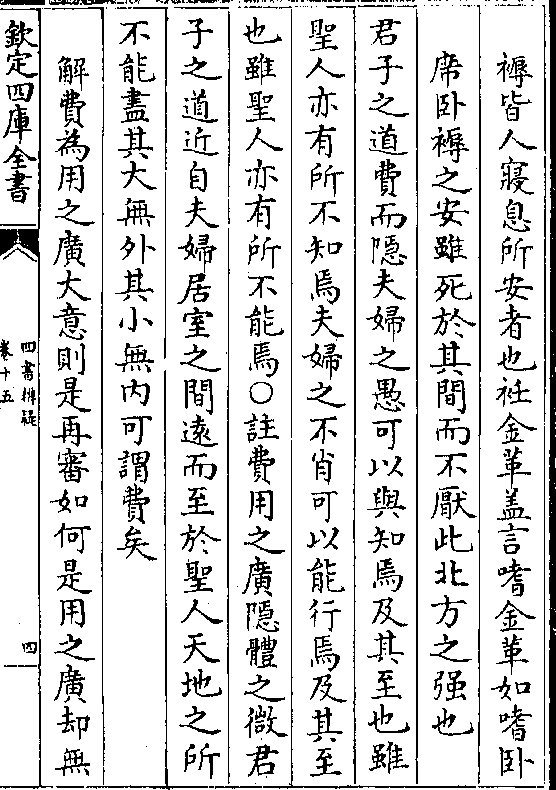 褥皆人寢息所安者也衽金革盖言嗜金革如嗜卧
席卧褥之安雖死於其間而不厭此北方之强也
君子之道費而隱夫婦之愚可以與知焉及其至也雖
聖人亦有所不知焉夫婦之不肖可以能行焉及其至
也雖聖人亦有所不能焉○註費用之廣隱體之微君
子之道近自夫婦居室之間遠而至於聖人天地之所
不能盡其大無外其小無内可謂費矣
解費為用之廣大意則是再審如何是用之廣却無
欽定四庫全書
四書辨疑
卷十五
四